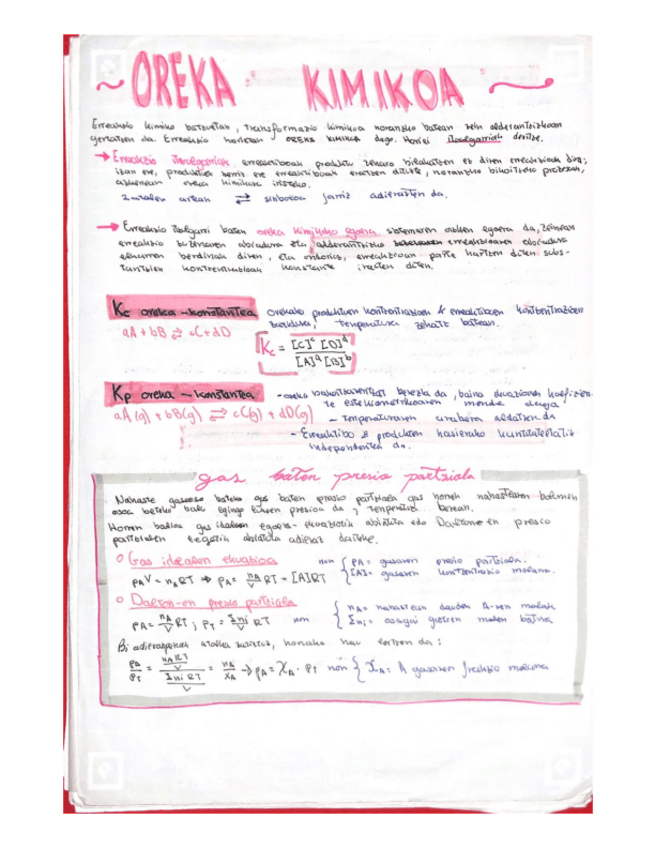 ~ OREKA KIMIKOA ~
Erreakzio kimiko batzuetan, transformazio kimikoa noranzko batean zein alderantzizkoan
gertatzen da. Erreakzio horietan OREKA KIMIKOA dago. Horiei itzulgarriak deritze.
→ Erreakzio itzulgarriak, erreakzioak produktu zeharo bihurtzen ez diren erreakzioak dira;
izan ere, produktuek berriz ere erreaktiboak eratzen dituzte, noranzko bikoitzeko prozesuan,
azkenean oreka kimikoa iristeko.
artean ⇄ sinboloa jarriz adierazten da.
→ Erreakzio itzulgarri baten oreka kimikoko egoera sistemaren azken egoera da, zeinean
erreakzio zuzenaren abiadura eta alderantzizko erreakzioaren abiadura
berdinak diren, eta ondorioz, erreakzioan parte hartzen duten subs-
tantzien kontzentrazioak konstante irauten duten.
Kc oreka-konstantea orekako produktuen kontzentrazioen & erreaktiboen kontzentrazioen
zatidura, tenperatura zehatz batean.
aA + bB ⇄ cC + dD
Kc = [C]ᶜ [D]ᵈ
[A]ᵃ [B]ᵇ
Kp oreka-konstantea - oreka bakoitzarentzat berezia da, baina ekuazioaren koefizien-
te estekiometrikoaren menpe dago
aA(g) + bB(g) ⇄ cC(g) + dD(g) - Tenperaturaren arabera aldatzen da
- Erreaktibo & produktuen hasierako kantitateetatik
independentea da.
gas baten presio partziala
Nahaste gaseoso bateko gas baten presio partziala gas horrek nahastearen bolumen
osoa beteko balu egingo lukeen presioa da, tenperatura berean.
Horren balioa gas idealen egoera-ekuaziotik abiatuta edo Daltonen presio
partzialen legetik abiatuta adieraz daiteke.
○ Gas idealen ekuazioa non { pA = gasaren presio partziala.
pAV = nART ⇒ pA = nA/V RT = [A]RT [A] = gasaren kontzentrazio molarra.
○ Dalton-en presio partziala { nA = nahastean dauden A-ren molak
pA = nA/V RT ; pT = Σni/V RT non Σni = osagai guztien molen batura
Bi adierazpenak zatituz, honako hau lortzen da:
pA/pT = (nART/V)/(Σni RT/V) = nA/XA → pA = XA · PT non { XA = A gasaren frakzio molarra